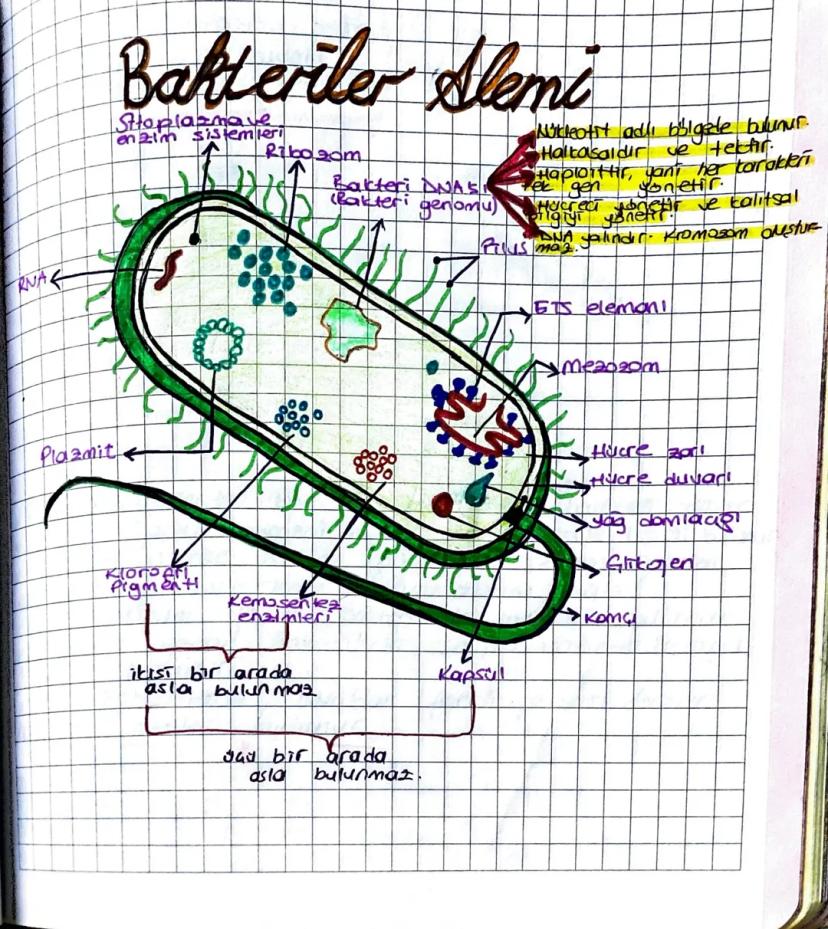 Bakteriler Alemi
Sitoplazma ve
enzim sistemleri
Ribozom
Bakteri DNASI
(Bakteri genomu)
Nükleotit adlı bölgede bulunur.
Halkasaldır ve tektir.
Haploittir, yani her karakteri
tek gen yönetir.
Hücreyi yönetir ve kalıtsal
bilgiyi yönetir.
DNA yalındır. Kromozom oluştur-
maz.
Pilus
RNA
ETS elemanı
Mezozom
Plazmit
Hücre zarı
Hücre duvarı
Yağ damlacığı
Glikojen
Kamçı
Klorofil
Pigmenti
Kemosentez
enzimleri
Kapsül
ikisi bir arada
asla bulunmaz
bir arada
asla bulunmaz.